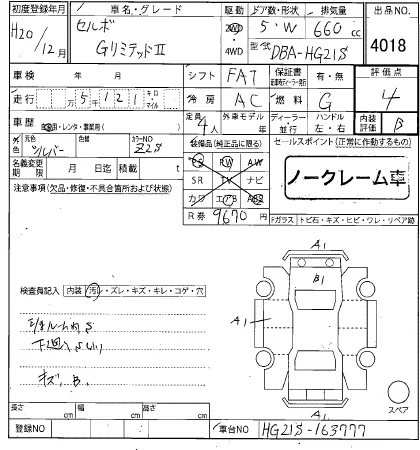 初度登録年月 車名・グレード 駆動 ドア数・形状 排気量 出品NO.
H20/12月 セルボ GリミテッドⅡ 2WD・4WD 5・W 660cc 4018
型式 DBA-HG21S
車検 年 月 シフト FAT 保証書 有・無 評価点
走行 万5千121 キロ マイル 冷房 AC 燃料 G 4
車歴 自家・レンタ・事業用( ) 定員 4人 外車モデル ディーラー・並行 ハンドル 左・右 内装評価 B
外色 元色 シルバー 色替 カラーNO Z2S 装備品(純正品に限る) セールスポイント(正常に作動するもの)
名義変更期限 月 日迄 積載 t PS PW AW
SR TV ナビ ノークレーム車
注意事項(欠品・修復・不具合箇所および状態) カワ エアB ABS
R券 9670円 Fガラス トビ石・キズ・ヒビ・ワレ・リペア跡
A1
B1
検査員記入 内装 汚レ・ズレ・キズ・キレ・コゲ・穴
A1 A1
キズ、B.
A1
スペア
長さ cm 幅 cm 高さ cm
登録NO 車台NO HG21S-163777